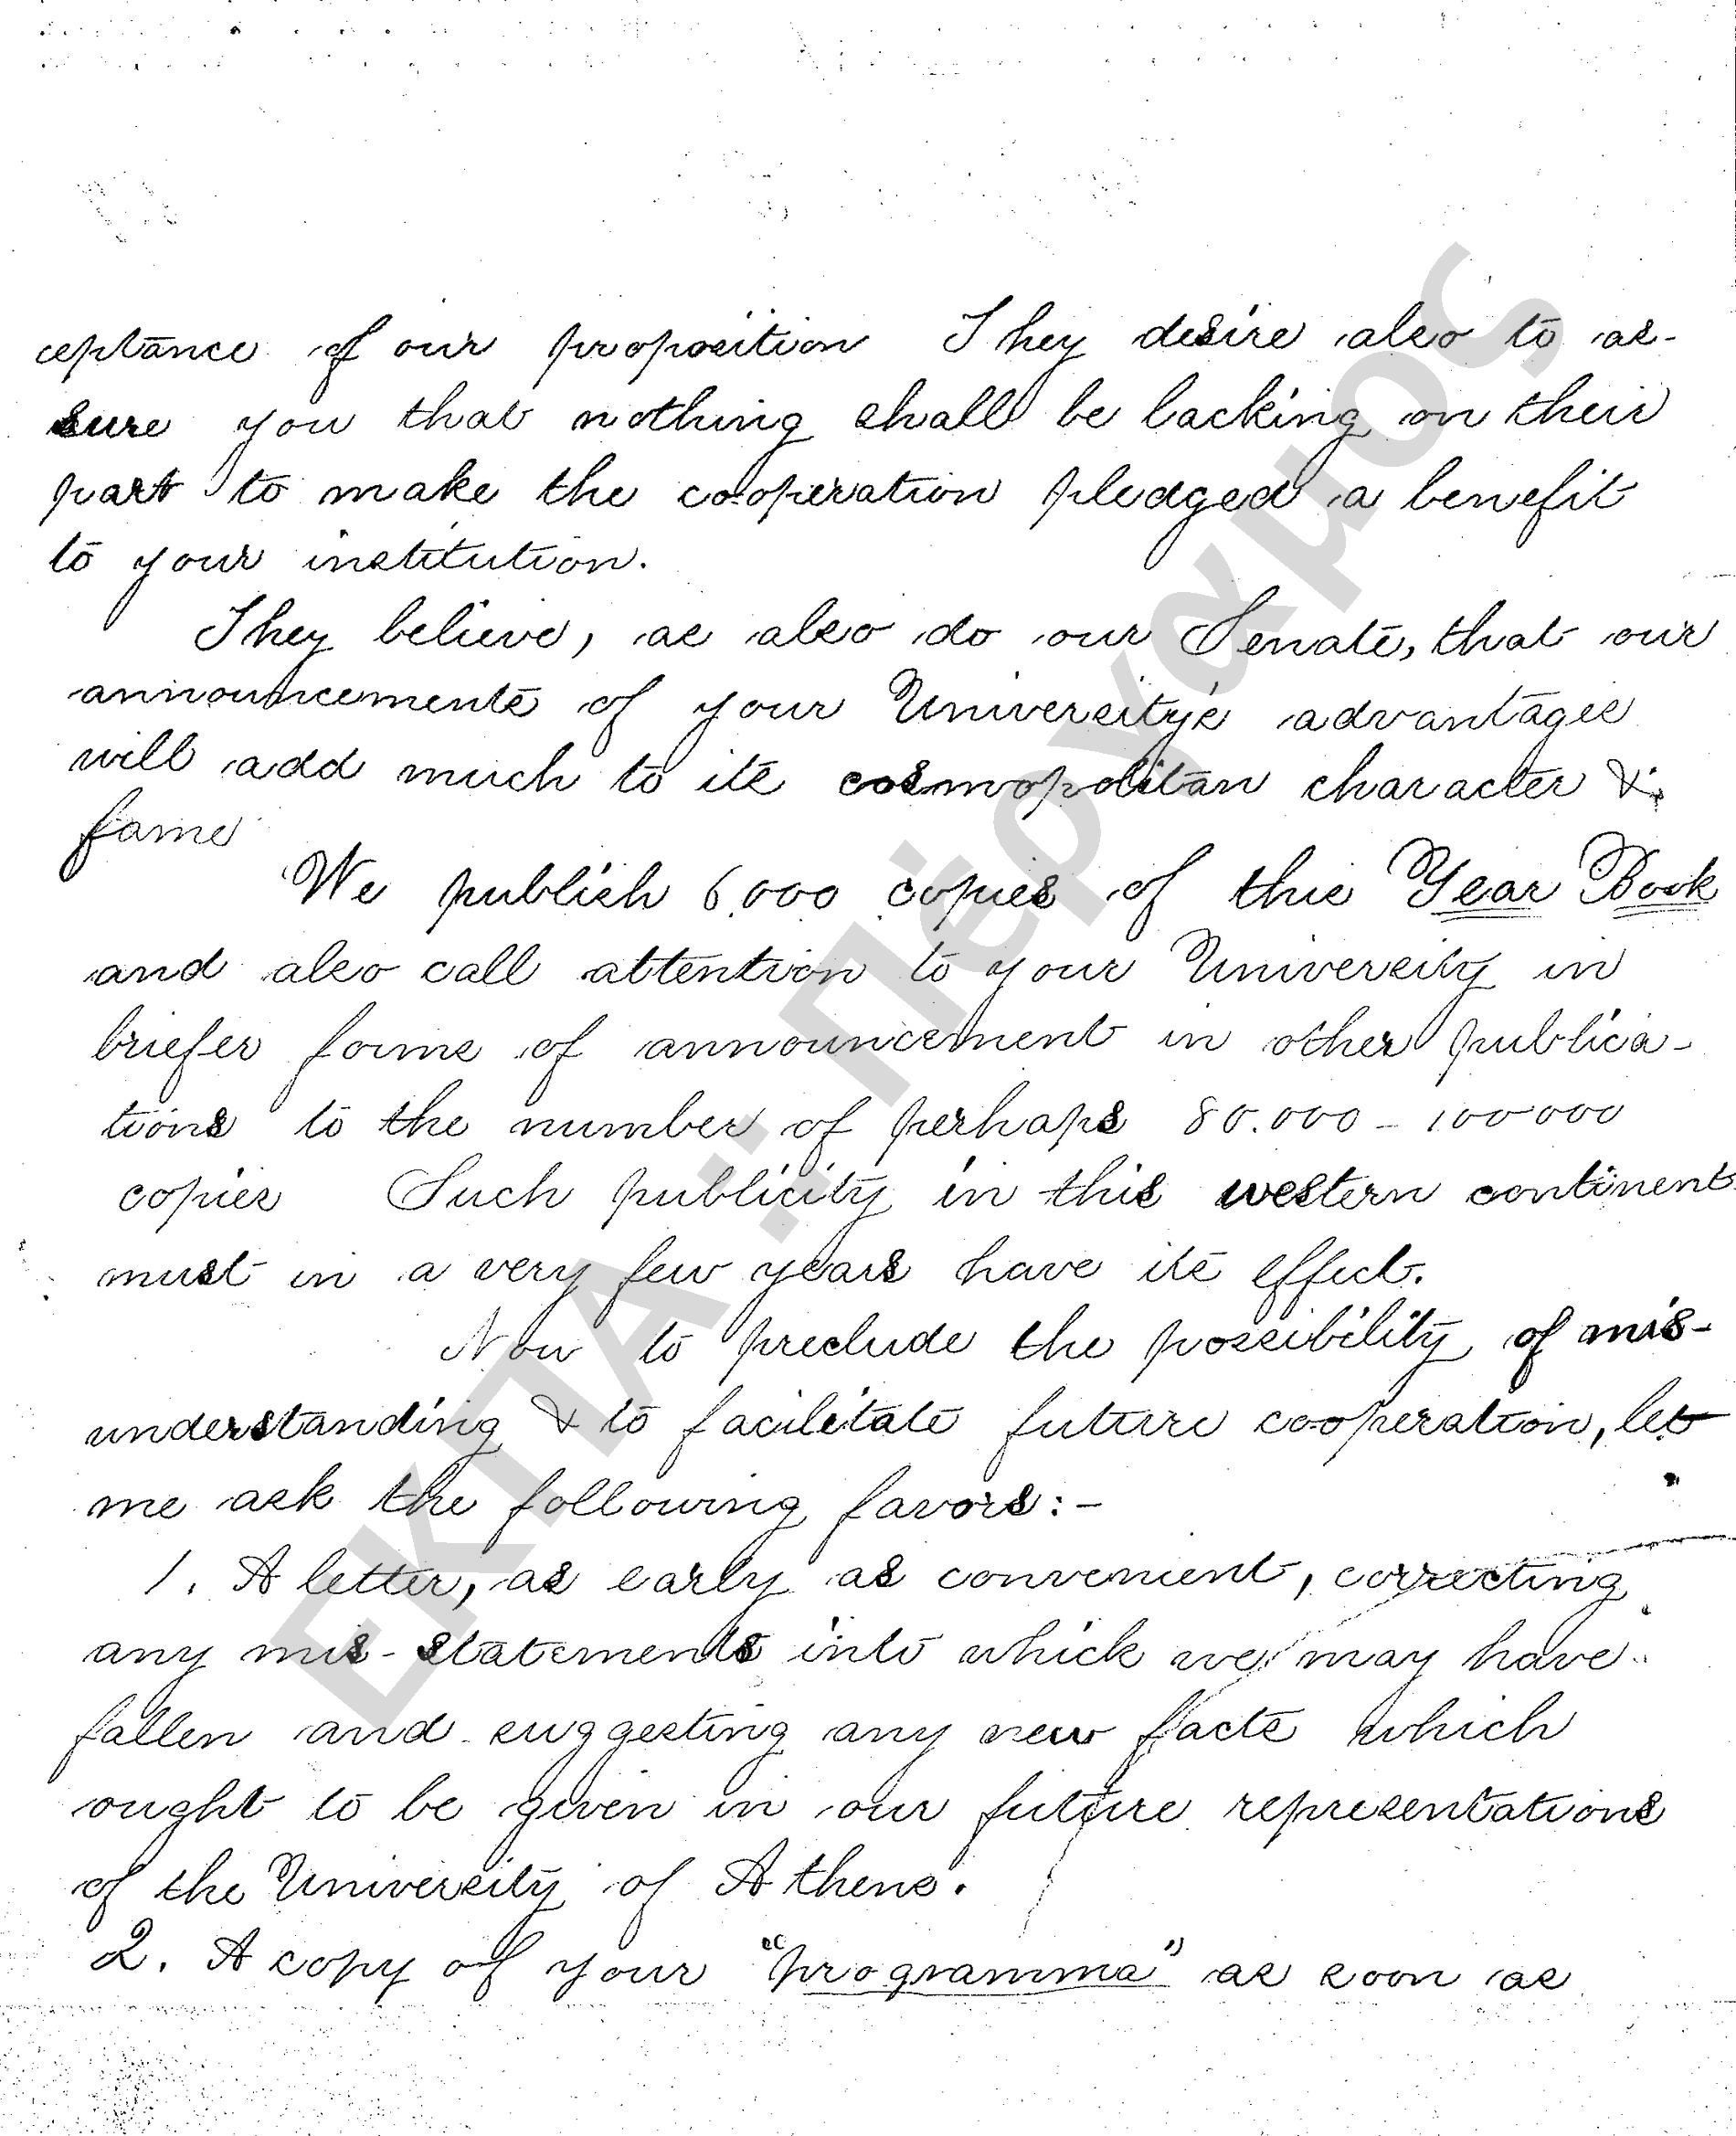 ceptance of our proposition They desire also to as-
sure you that nothing shall be lacking on their
part to make the cooperation pledged a benefit
to your institution.
They believe, as also do our Senate, that our
announcements of your University's advantages
will add much to its cosmopolitan character &
fame
We publish 6.000 copies of this Year Book
and also call attention to your University in
briefer forms of announcement in other publica-
tions to the number of perhaps 80.000 - 100000
copies Such publicity in this western continent
must in a very few years have its effect.
Now to preclude the possibility of mis-
understanding & to facilitate future cooperation, let
me ask the following favors:-
1. A letter, as early as convenient, correcting
any mis-statements into which we may have
fallen and suggesting any new facts which
ought to be given in our future representations
of the University of Athens.
2. A copy of your "programma" as soon as
ΕΚΠΑ : Πέργαμος